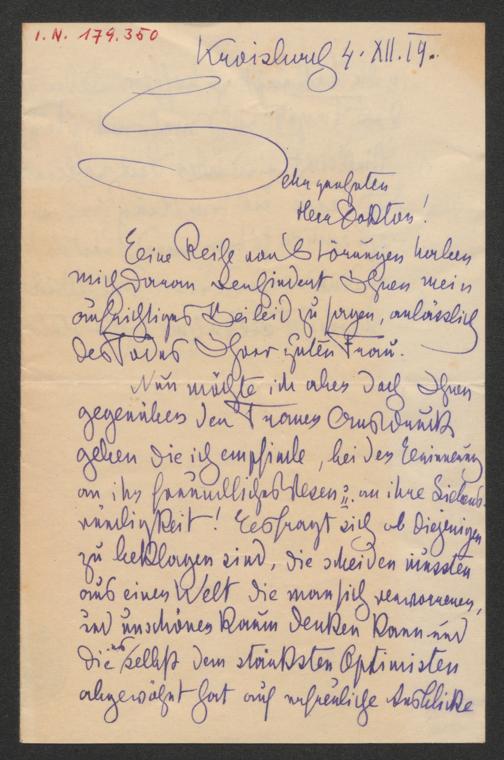 I.N. 179.350
Kroisbach 4. XII. 19.
Sehr geehrter
Herr Doktor!
Eine Reihe von Störungen haben
mich daran verhindert Ihnen mein
aufrichtiges Beileid zu sagen, anlässlich
des Todes Ihrer guten Frau.
Nun möchte ich aber doch Ihnen
gegenüber der Trauer Ausdruck
geben die ich empfinde, bei der Erinnerung
an ihr freundliches Wesen u. an ihre Liebens-
würdigkeit! Es fragt sich ob diejenigen
zu beklagen sind, die scheiden müssten
aus einer Welt die man sich verworrener,
und unschöner kaum denken kann und
die es selbst dem stärksten Optimisten
abgewöhnt hat auf erfreuliche Ausblicke